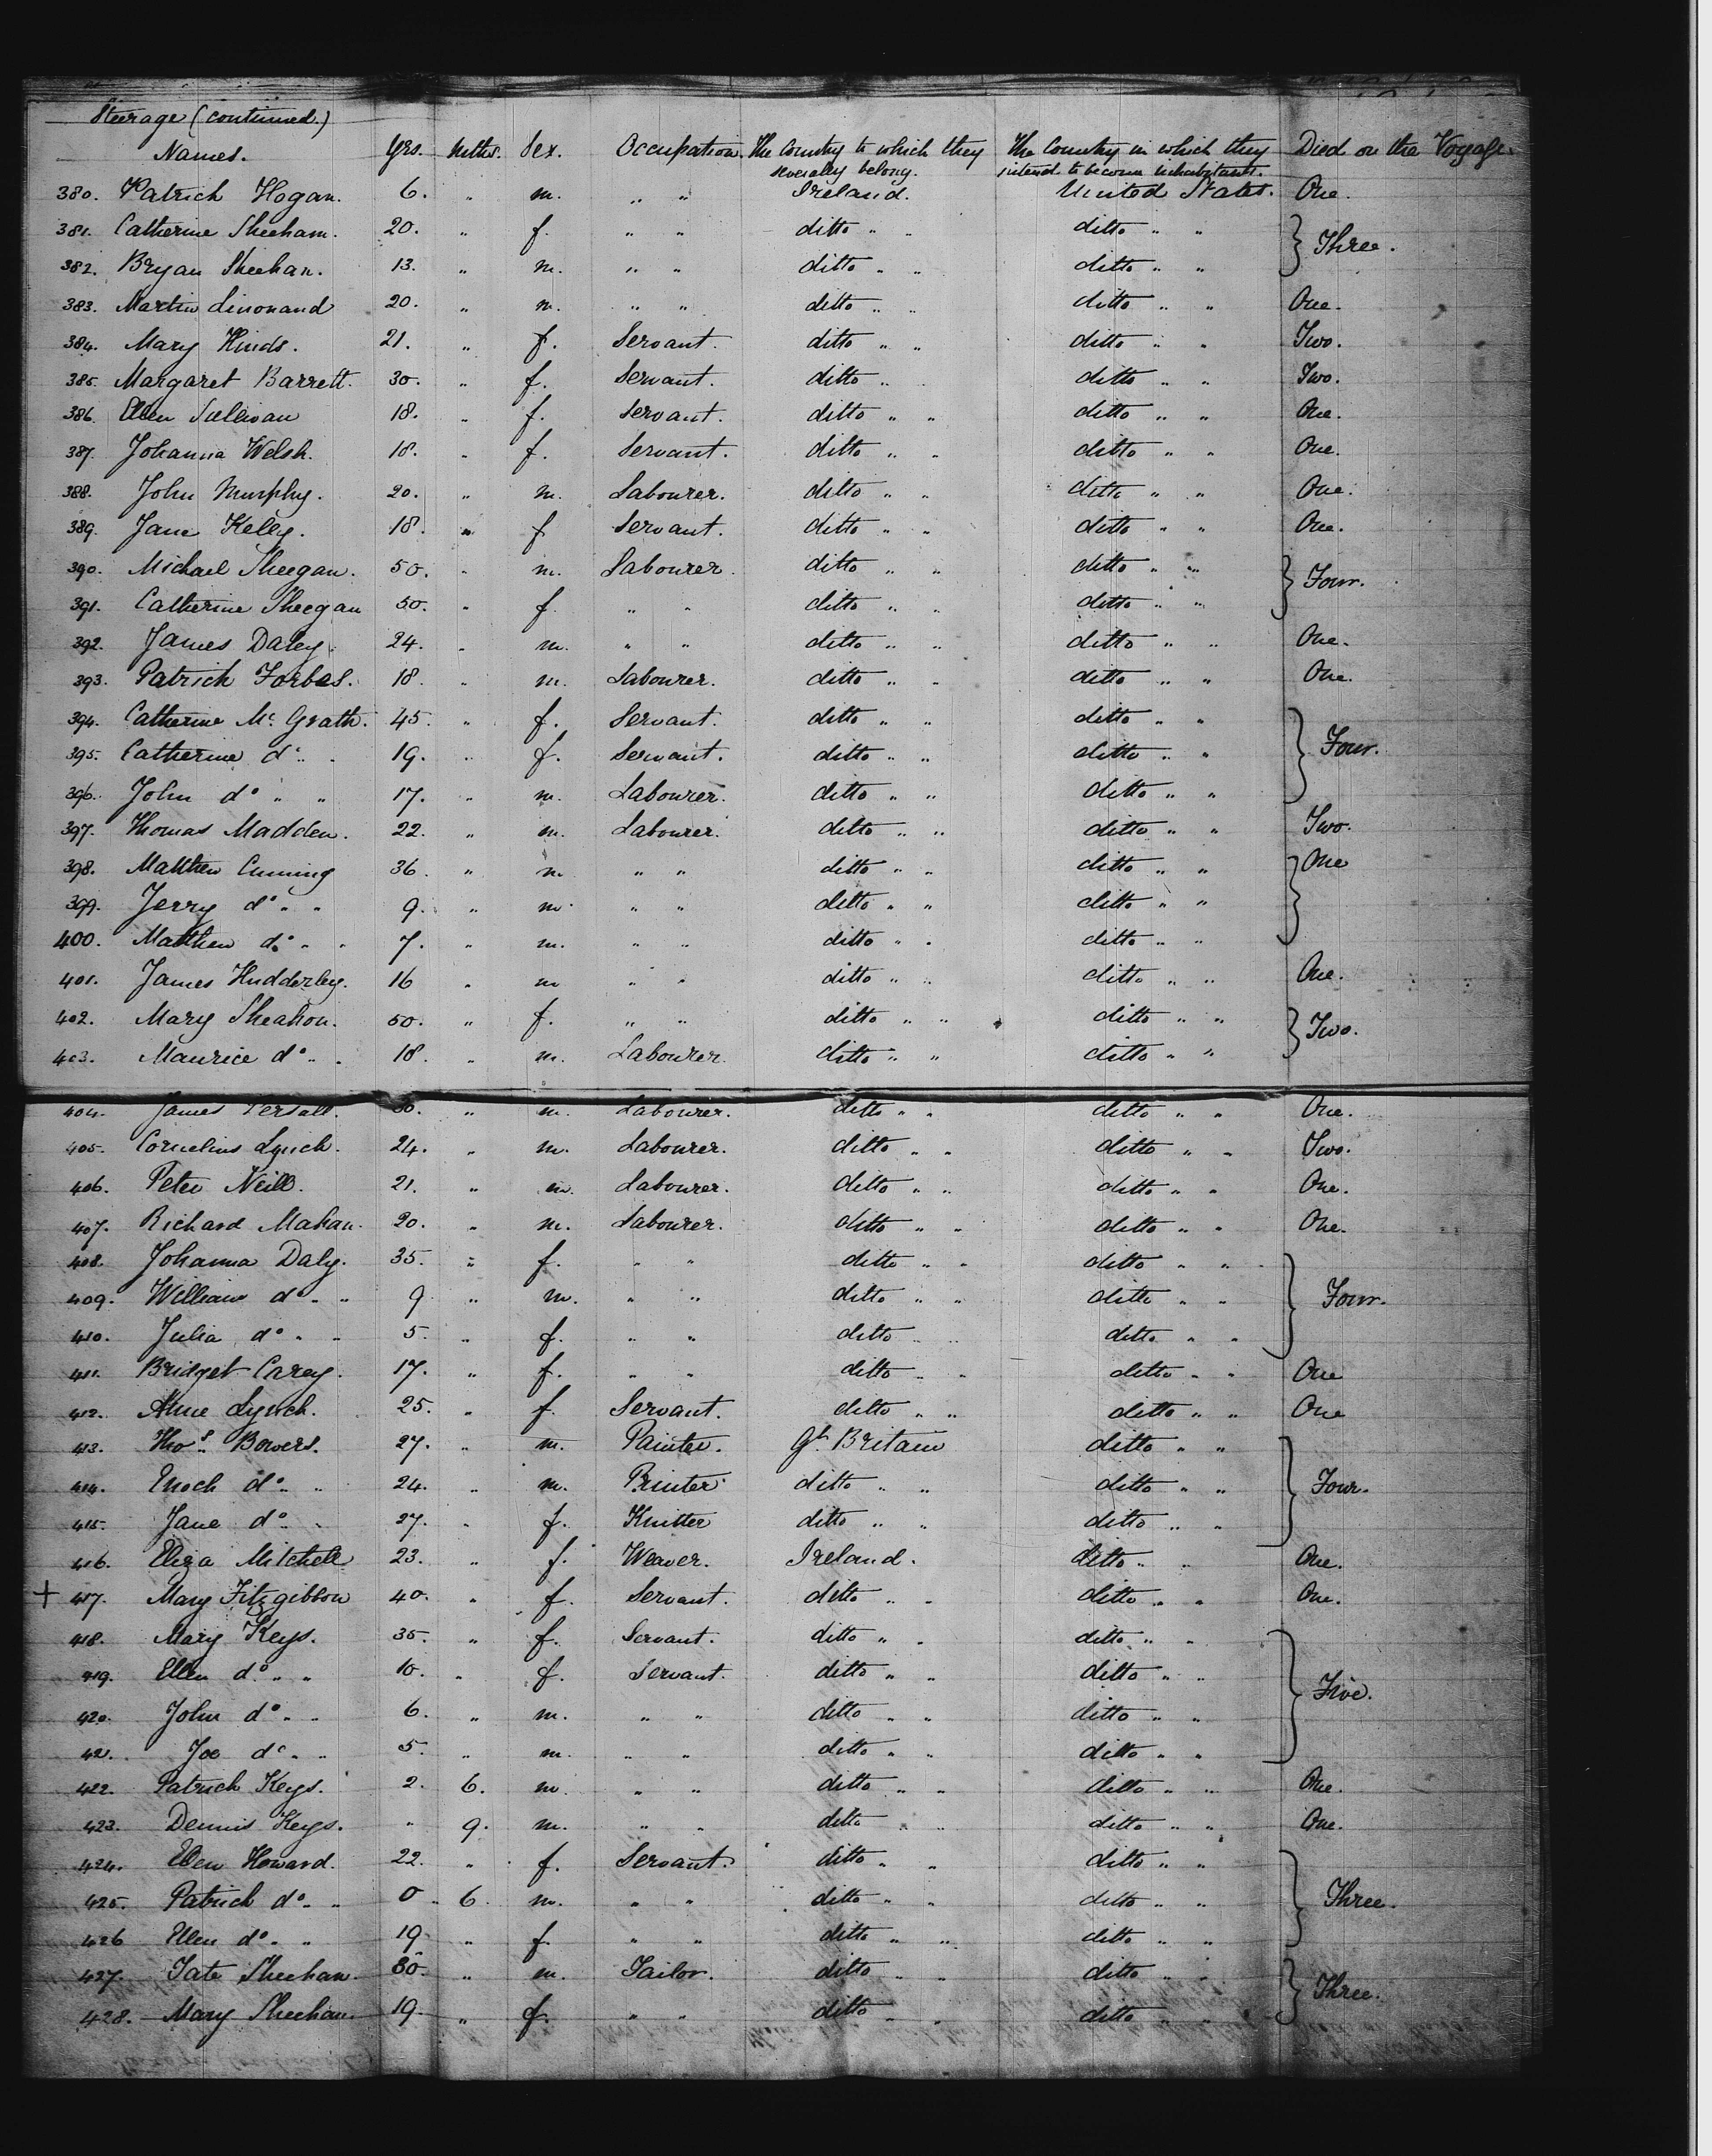 Steerage (continued.)
Names. Yrs. Mths. Sex. Occupation. The Country to which they severally belong. The Country in which they intend to become inhabitants. Died on the Voyage.
380. Patrick Hogan. 6. " m. " " Ireland. United States. One.
381. Catherine Sheeham. 20. " f. " " ditto " " ditto " " } Three.
382. Bryan Sheehan. 13. " m. " " ditto " " ditto " "
383. Martin 20. " m. " " ditto " " ditto " " One.
384. Mary Hinds. 21. " f. Servant. ditto " " ditto " " Two.
385. Margaret Barrett. 30. " f. Servant. ditto " " ditto " " Two.
386. Ellen Sullivan 18. " f. Servant. ditto " " ditto " " One.
387. Johanna Welsh. 18. " f. Servant. ditto " " ditto " " One.
388. John Murphy. 20. " m. Labourer. ditto " " ditto " " One.
389. Jane Kelly. 18. " f Servant. ditto " " ditto " " One.
390. Michael Sheegan. 50. " m. Labourer. ditto " " ditto " " } Four.
391. Catherine Sheegan 50. " f. " " ditto " " ditto " "
392. James Daley. 24. " m. " " ditto " " ditto " " One.
393. Patrick Forbes. 18. " m. Labourer. ditto " " ditto " " One.
394. Catherine Mc. Grath. 45. " f. Servant. ditto " " ditto " " } Four.
395. Catherine do " " 19. " f. Servant. ditto " " ditto " "
396. John do " " 17. " m. Labourer. ditto " " ditto " "
397. Thomas Madden. 22. " m. Labourer. ditto " " ditto " " Two.
398. Matthew Cuming 36. " m " " ditto " " ditto " " } One
399. Jerry do " " 9. " m. " " ditto " " ditto " "
400. Matthew do " " 7. " m. " " ditto " " ditto " "
401. James Hudderley. 16 " m " " ditto " " ditto " " One.
402. Mary Sheahon. 50. " f. " " ditto " " ditto " " } Two.
403. Maurice do " " 18. " m. Labourer. ditto " " ditto " "
404. James 30. " m. Labourer. ditto " " ditto " " One.
405. Cornelius Lynch. 24. " m. Labourer. ditto " " ditto " " Two.
406. Peter Neill. 21. " m. Labourer. ditto " " ditto " " One.
407. Richard Mahan. 20. " m. Labourer. ditto " " ditto " " One.
408. Johanna Daly. 35. " f. " " ditto " " ditto " " } Four.
409. William do " " 9 " m. " " ditto " " ditto " "
410. Julia do " " 5. " f. " " ditto " " ditto " "
411. Bridget Carey. 17. " f. " " ditto " " ditto " " One
412. Anne Lynch. 25. " f. Servant. ditto " " ditto " " One
413. Thos. Bowers. 27. " m. Painter. Gt. Britain ditto " " } Four.
414. Enoch do " " 24. " m. Printer ditto " " ditto " "
415. Jane do " " 27. " f. Knitter ditto " " ditto " "
416. Eliza Mitchell 23. " f. Weaver. Ireland. ditto " " One.
+ 417. Mary Fitzgibbon 40. " f. Servant. ditto " " ditto " " One.
418. Mary Keys. 35. " f. Servant. ditto " " ditto " " } Five.
419. Ellen do " " 10. " f. Servant. ditto " " ditto " "
420. John do " " 6. " m. " " ditto " " ditto " "
421. Joe do " " 5. " m. " " ditto " " ditto " "
422. Patrick Keys. 2. 6. m. " " ditto " " ditto " " One.
423. Dennis Keys. " 9. m. " " ditto " " ditto " " One.
424. Ellen Howard. 22. " f. Servant. ditto " " ditto " " } Three.
425. Patrick do " " 0 6. m. " " ditto " " ditto " "
426 Ellen do " " 19 " f. " " ditto " " ditto " "
427. Tate Sheehan. 30. " m. Tailor. ditto " " ditto " " } Three.
428. Mary Sheehan. 19. " f. " " ditto " " ditto " "